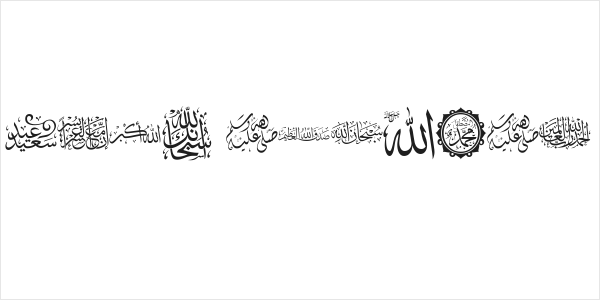 الحمد لله رب العالمين صلى الله عليه وسلم محمد الله جل جلاله سبحان الله صدق الله العظيم صلى الله عليه وسلم سبحان الله الله أكبر إن مع العسر يسرا عيد سعيد